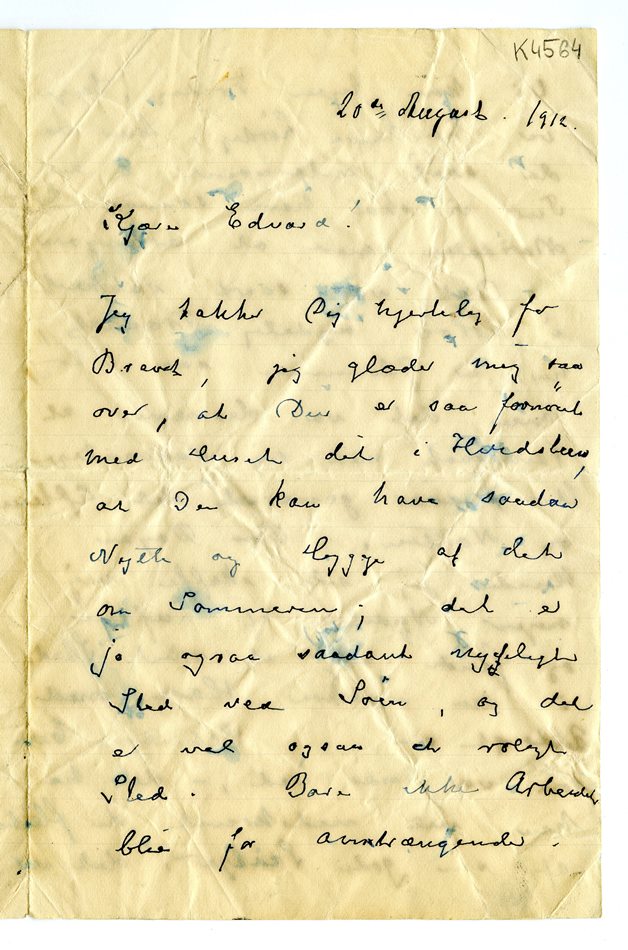 K4564
20de August. 1912.
Kjære Edvard!
Jeg takker Dig hjertelig for
Brevet, jeg glæder mig saa
over, at Du er saa fornöiet
med Huset dit i Hvidsteen,
at Du kan have saadan
Nytte og Hygge af det
om Sommeren; det er
jo ogsaa saadant nydeligt
Sted ved Söen, og det
er vel ogsaa et roligt
Sted. Bare ikke Arbeidet
blir for anstrængende.